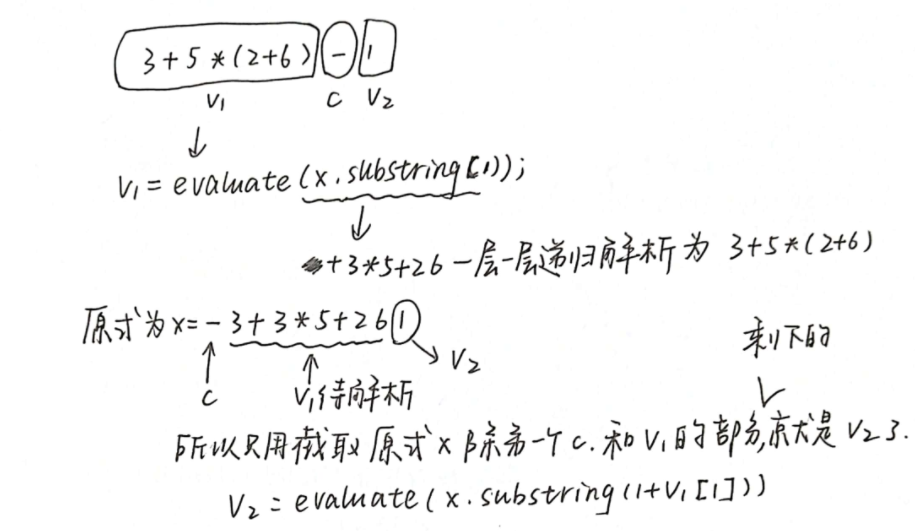 3+5*(2+6) - 1
V1 C V2
V1=evaluate(x.substring[1));
+3*5+26一层一层递归解析为 3+5*(2+6)
原式为x=-3+3*5+261
V2
剩下的
C V1待解析
所以只用截取原式x除第一个c.和V1的部分,就是V2了.
V2=evaluate(x.substring(1+V1[1]))